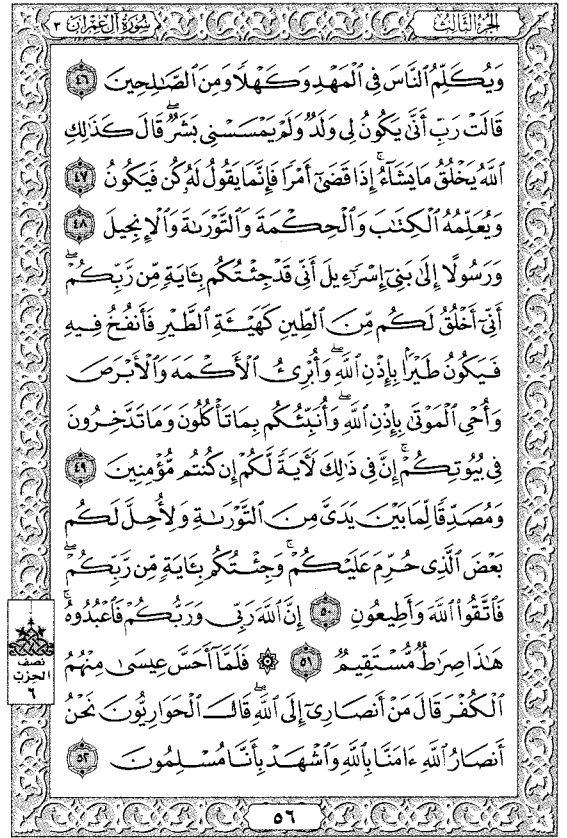 الجزء الثالث
سورة آل عمران ٣
وَيُكَلِّمُ ٱلنَّاسَ فِى ٱلْمَهْدِ وَكَهْلًا وَمِنَ ٱلصَّٰلِحِينَ ٤٦
قَالَتْ رَبِّ أَنَّىٰ يَكُونُ لِى وَلَدٌ وَلَمْ يَمْسَسْنِى بَشَرٌ ۖ قَالَ كَذَٰلِكِ
ٱللَّهُ يَخْلُقُ مَا يَشَآءُ ۚ إِذَا قَضَىٰٓ أَمْرًا فَإِنَّمَا يَقُولُ لَهُۥ كُن فَيَكُونُ ٤٧
وَيُعَلِّمُهُ ٱلْكِتَٰبَ وَٱلْحِكْمَةَ وَٱلتَّوْرَىٰةَ وَٱلْإِنجِيلَ ٤٨
وَرَسُولًا إِلَىٰ بَنِىٓ إِسْرَٰٓءِيلَ أَنِّى قَدْ جِئْتُكُم بِـَٔايَةٍ مِّن رَّبِّكُمْ ۖ
أَنِّىٓ أَخْلُقُ لَكُم مِّنَ ٱلطِّينِ كَهَيْـَٔةِ ٱلطَّيْرِ فَأَنفُخُ فِيهِ
فَيَكُونُ طَيْرًۢا بِإِذْنِ ٱللَّهِ ۖ وَأُبْرِئُ ٱلْأَكْمَهَ وَٱلْأَبْرَصَ
وَأُحْىِ ٱلْمَوْتَىٰ بِإِذْنِ ٱللَّهِ ۖ وَأُنَبِّئُكُم بِمَا تَأْكُلُونَ وَمَا تَدَّخِرُونَ
فِى بُيُوتِكُمْ ۚ إِنَّ فِى ذَٰلِكَ لَـَٔايَةً لَّكُمْ إِن كُنتُم مُّؤْمِنِينَ ٤٩
وَمُصَدِّقًا لِّمَا بَيْنَ يَدَىَّ مِنَ ٱلتَّوْرَىٰةِ وَلِأُحِلَّ لَكُم
بَعْضَ ٱلَّذِى حُرِّمَ عَلَيْكُمْ ۚ وَجِئْتُكُم بِـَٔايَةٍ مِّن رَّبِّكُمْ ۖ
فَٱتَّقُوا۟ ٱللَّهَ وَأَطِيعُونِ ٥٠ إِنَّ ٱللَّهَ رَبِّى وَرَبُّكُمْ فَٱعْبُدُوهُ ۚ
هَٰذَا صِرَٰطٌ مُّسْتَقِيمٌ ٥١ ۞ فَلَمَّآ أَحَسَّ عِيسَىٰ مِنْهُمُ
نصف
الحزب
٦
ٱلْكُفْرَ قَالَ مَنْ أَنصَارِىٓ إِلَى ٱللَّهِ ۖ قَالَ ٱلْحَوَارِيُّونَ نَحْنُ
أَنصَارُ ٱللَّهِ ءَامَنَّا بِٱللَّهِ وَٱشْهَدْ بِأَنَّا مُسْلِمُونَ ٥٢
٥٦